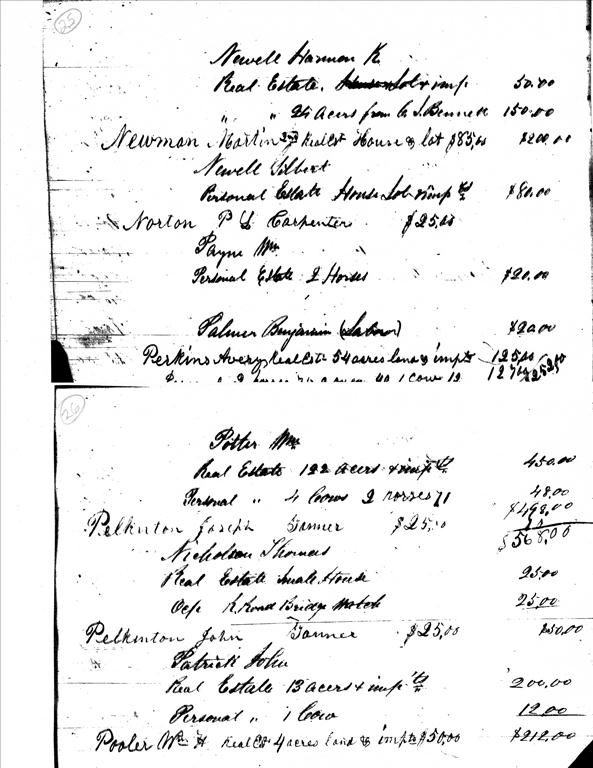 25
Newell Harmon K
Real Estate, Lot & imp 50.00
" " 24 Acers from C. S. Bennett 150.00
Newman Martin Real Est House & lot $85.00 $200.00
Newell Gilbert
Personal Estate House Lot & imp ts $80.00
Norton P L Carpenter $25.00
Payne Wm
Personal Estate 2 Horses $20.00
Palmer Benjamin (Labour) $20.00
Perkins Avery Real Este 54 acres land & impts 125.00
26
Potter Wm
Real Estate 122 Acers & imp'ts 450.00
Personal " 4 Cows 2 horses 71 48.00
$498.00
Pelkinton Joseph Tanner $25.00
$568.00
Nicholson Thomas
Real Estate Small House 25.00
Ocp R Road Bridge Watch 25.00
Pelkinton John Tanner $25.00 $50.00
Patrick John
Real Estate 13 acers & imp'ts 200.00
Personal " 1 Cow 12.00
Pooler Wm H Real Est 4 acres land & impts $50.00 $212.00